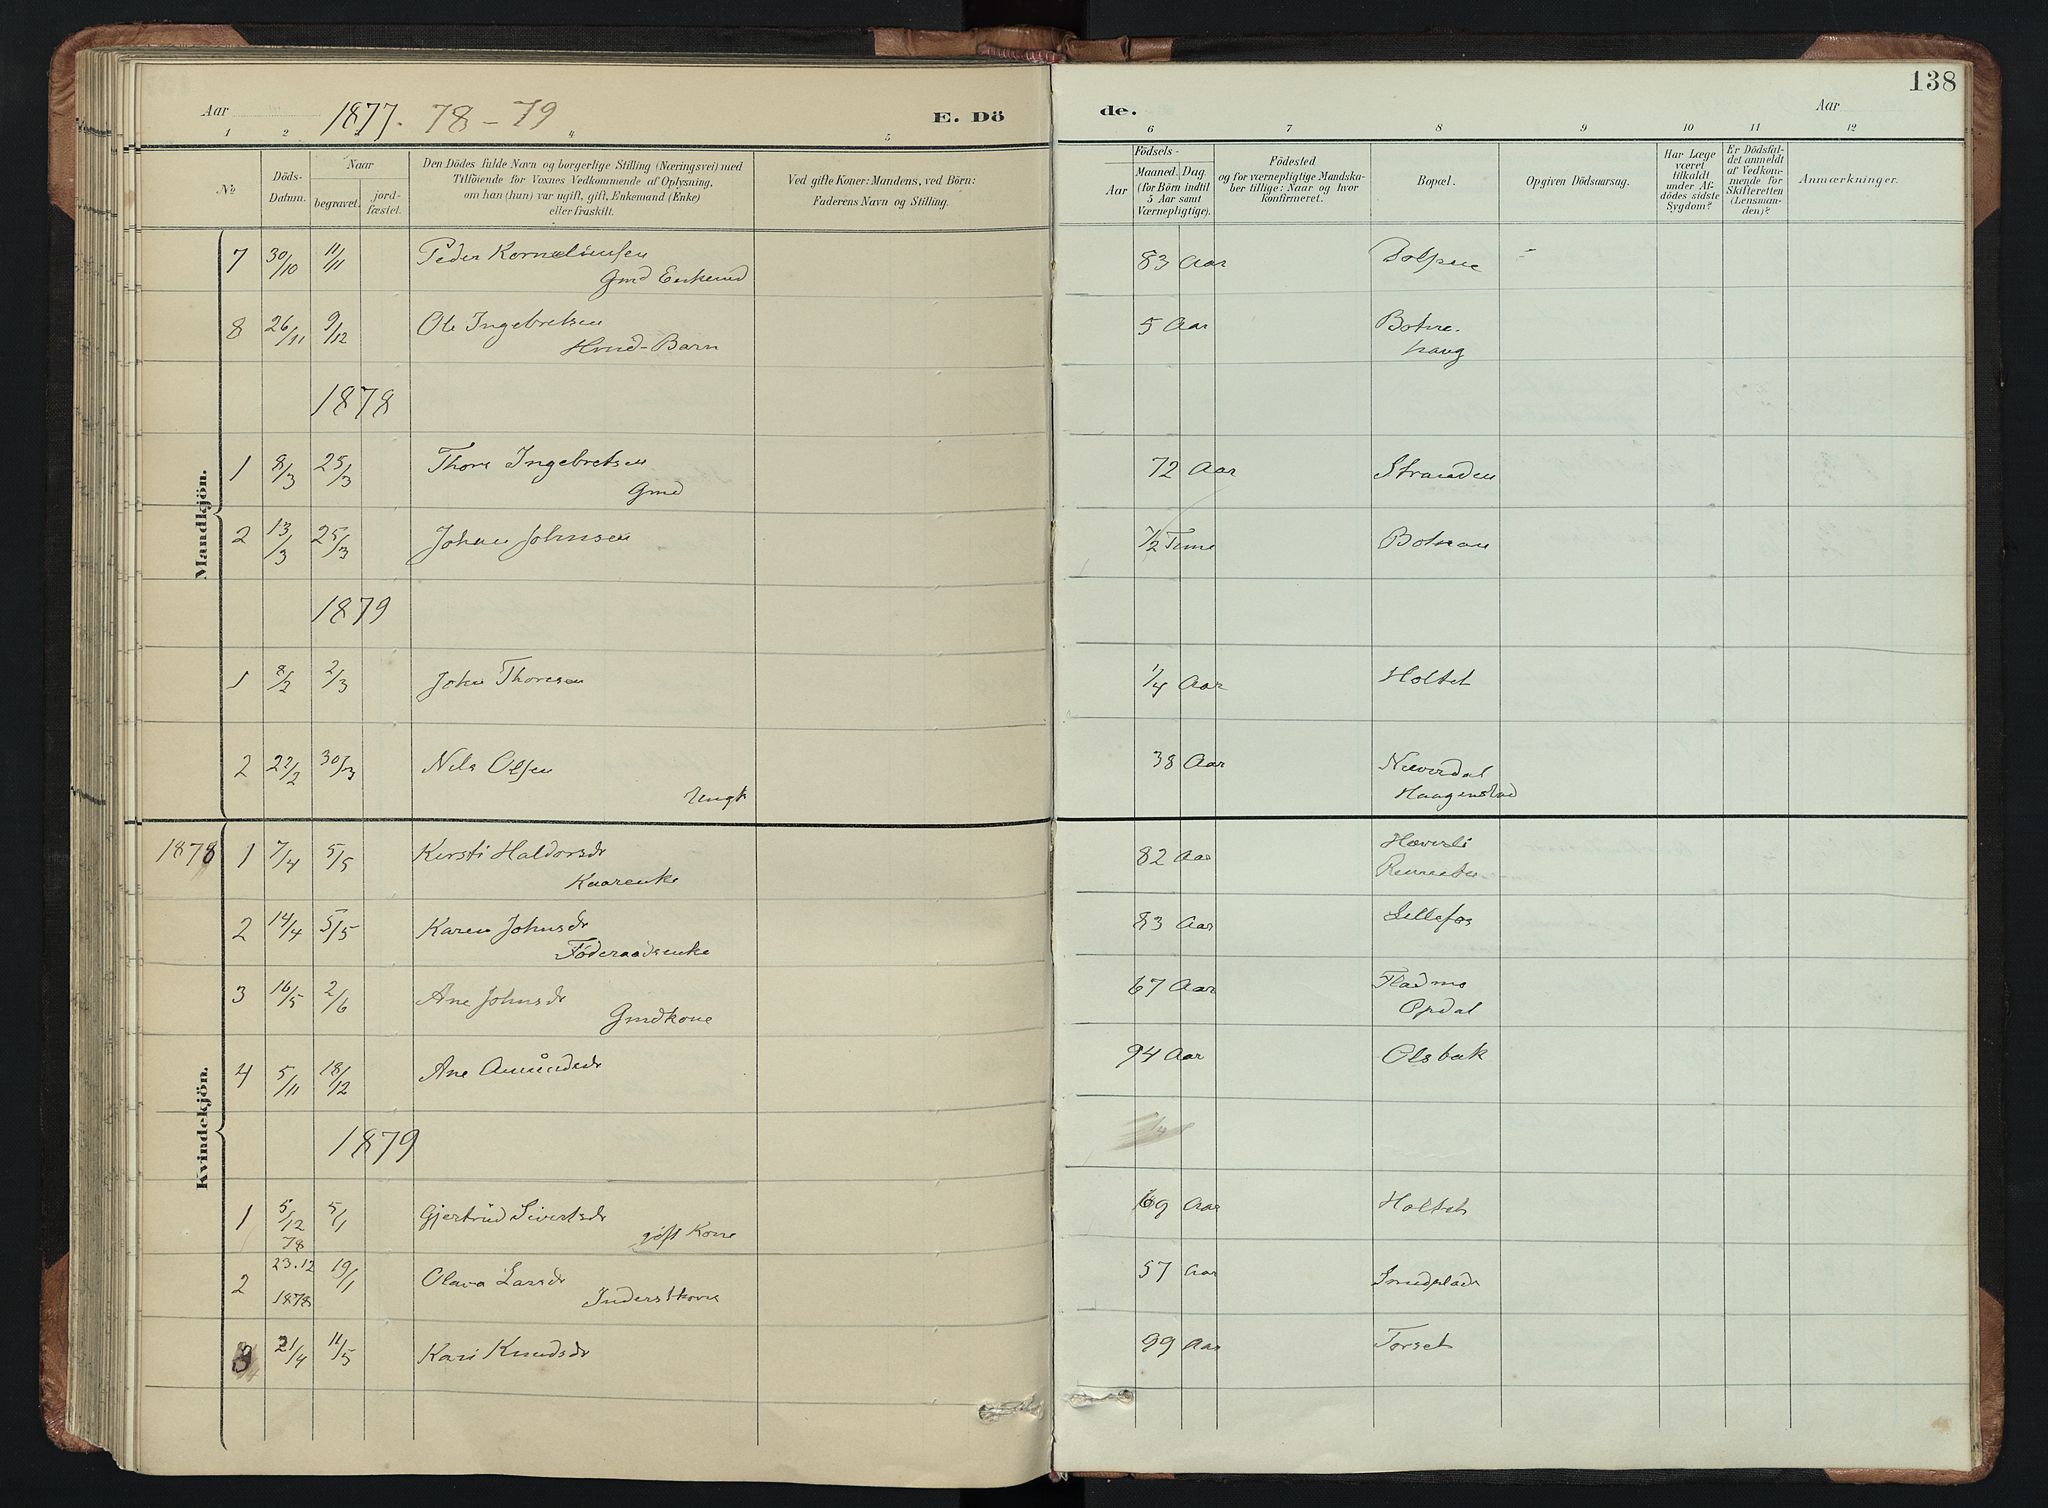 138
Aar 1877. 78-79 E. Dö de. Aar
1 2 3 4 5 6 7 8 9 10 11 12
No
Döds-Datum.
Naar
begravet.
jord-fæstet.
Den Dödes fulde Navn og borgerlige Stilling (Næringsvei) med
Tilföiende for Voxnes Vedkommende af Oplysning,
om han (hun) var ugift, gift, Enkemand (Enke)
eller fraskilt.
Ved gifte Koner: Mandens, ved Börn:
Faderens Navn og Stilling.
Födsels-
Aar Maaned. Dag.
(for Börn indtil
5 Aar samt
Værnepligtige).
Födested
og for værnepligtige Mandska-
ber tillige: Naar og hvor
konfirmeret.
Bopæl.
Opgiven Dödsaarsag.
Har Læge
været
tilkaldt
under Af-
dödes sidste
Sygdom?
Er Dödsfal-
det anmeldt
af Vedkom-
mende for
Skifteretten
(Lensman-
den)?
Anmærkninger.
Mandkjön.
7 30/10 11/11 Peder Korneliussen 83 Aar
Gmd Enkemd
8 26/11 9/12 Ole Ingebretsen 5 Aar Botne.
Hmd-Barn haug
1878
1 8/3 25/3 Thore Ingebretsen 72 Aar Stranden
Gmd
2 13/3 25/3 Johan Johnsen 1/2 Time Botnan
1879
1 8/2 2/3 John Thoresen 1/4 Aar Holtet
2 22/2 30/3 Nils Olsen 38 Aar Næverdal
Ungk Haagenstad
Kvindekjön.
1878 1 7/4 5/5 Kersti Haldorsdr 82 Aar Hæverli
Kaarenke
2 14/4 5/5 Karen Johnsdr 83 Aar Lillefos
Föderaadsenke
3 16/5 2/6 Ane Johnsdr 67 Aar Fladmo
Gmdkone Opdal
4 5/11 18/12 Ane Amundsdr 94 Aar Olsbak
1879
1 5/12 78 5/1 Gjertrud Sivertsdr 69 Aar Holtet
gift Kone
2 23.12 1878 19/1 Olava Larsdr 57 Aar Smedplads
Inderstkone
3 21/4 11/5 Kari Knudsdr 99 Aar Torset